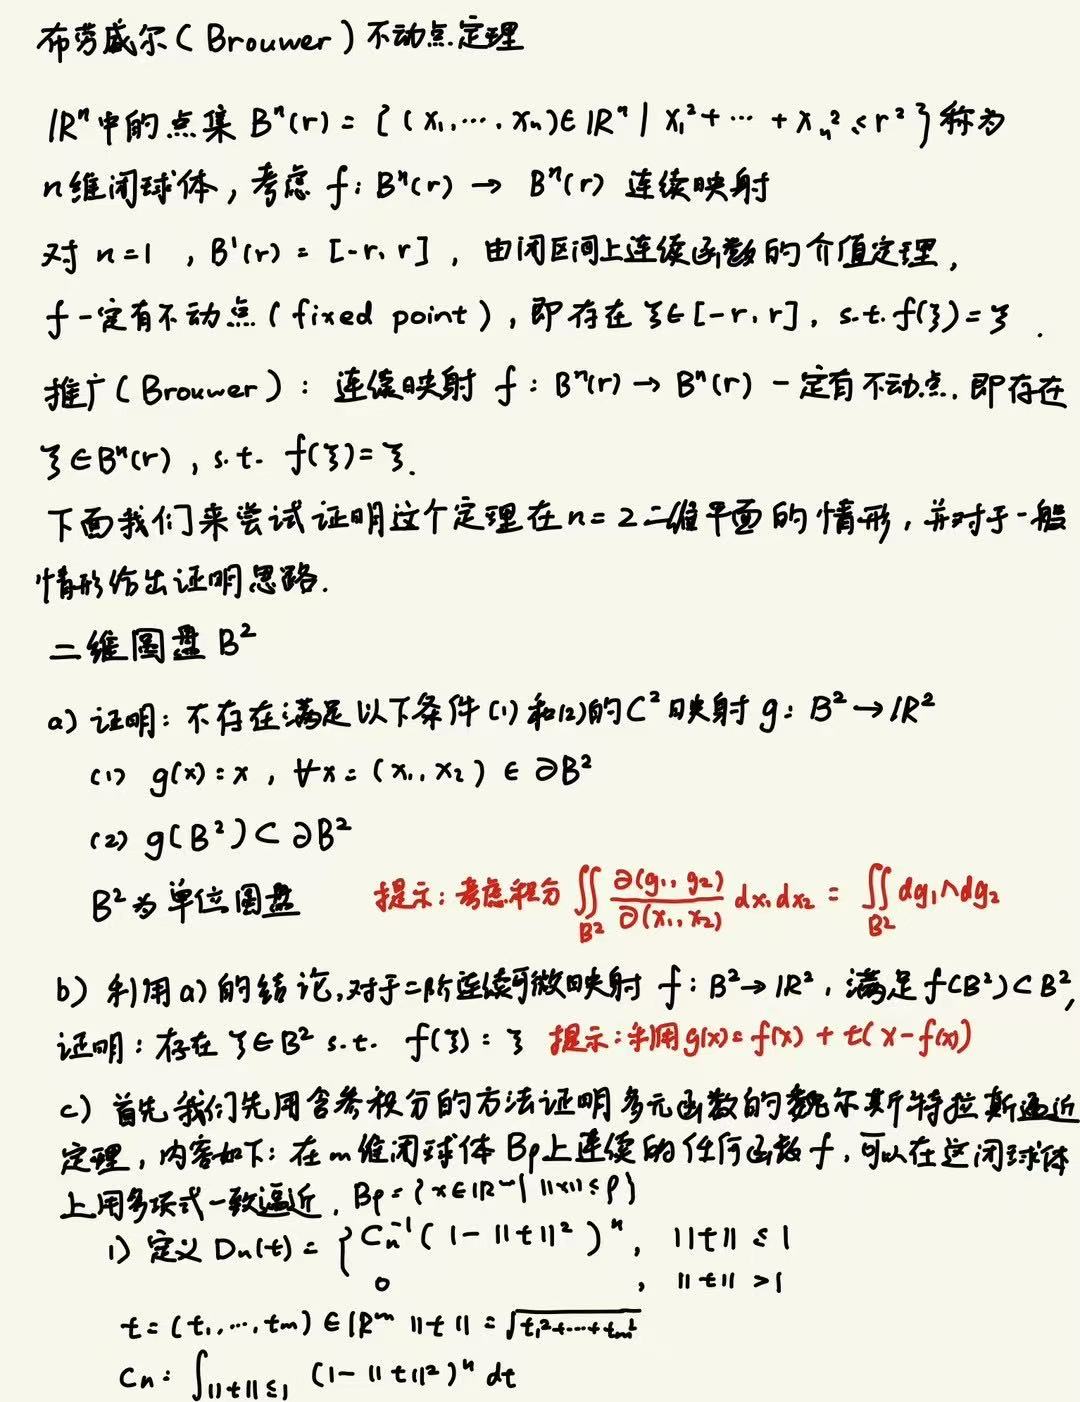 布劳威尔(Brouwer)不动点定理
IRⁿ中的点集 Bⁿ(r) = {(x₁,…,xₙ)∈IRⁿ | x₁²+⋯+xₙ²≤r²}称为
n维闭球体,考虑 f: Bⁿ(r) → Bⁿ(r) 连续映射
对 n=1 , B¹(r) = [-r, r] , 由闭区间上连续函数的介值定理,
f一定有不动点(fixed point), 即存在 ξ∈[-r, r], s.t. f(ξ)=ξ .
推广(Brouwer): 连续映射 f: Bⁿ(r) → Bⁿ(r) 一定有不动点. 即存在
ξ∈Bⁿ(r), s.t. f(ξ)=ξ.
下面我们来尝试证明这个定理在n=2二维平面的情形, 并对于一般
情形给出证明思路.
二维圆盘 B²
a) 证明: 不存在满足以下条件(1)和(2)的C²映射 g: B²→IR²
(1) g(x)=x , ∀x=(x₁, x₂) ∈ ∂B²
(2) g(B²)⊂∂B²
B²为单位圆盘 提示: 考虑积分 ∬_{B²} ∂(g₁, g₂)/∂(x₁, x₂) dx₁dx₂ = ∬_{B²} dg₁∧dg₂
b) 利用a)的结论,对于二阶连续可微映射 f: B²→IR², 满足f(B²)⊂B²,
证明: 存在 ξ∈B² s.t. f(ξ)=ξ 提示:利用g(x)=f(x)+t(x-f(x))
c) 首先我们先用含参积分的方法证明多元函数的魏尔斯特拉斯逼近
定理, 内容如下: 在m维闭球体 Bρ上连续的任何函数f, 可以在这闭球体
上用多项式一致逼近. Bρ={x∈IRᵐ| ||x||≤ρ}
1) 定义 Dn(t) = { Cn⁻¹(1-||t||²)ⁿ, ||t||≤1
0 , ||t||>1
t=(t₁,…,tm)∈IRᵐ ||t||=√(t₁²+⋯+tm²)
Cn: ∫_{||t||≤1} (1-||t||²)ⁿ dt